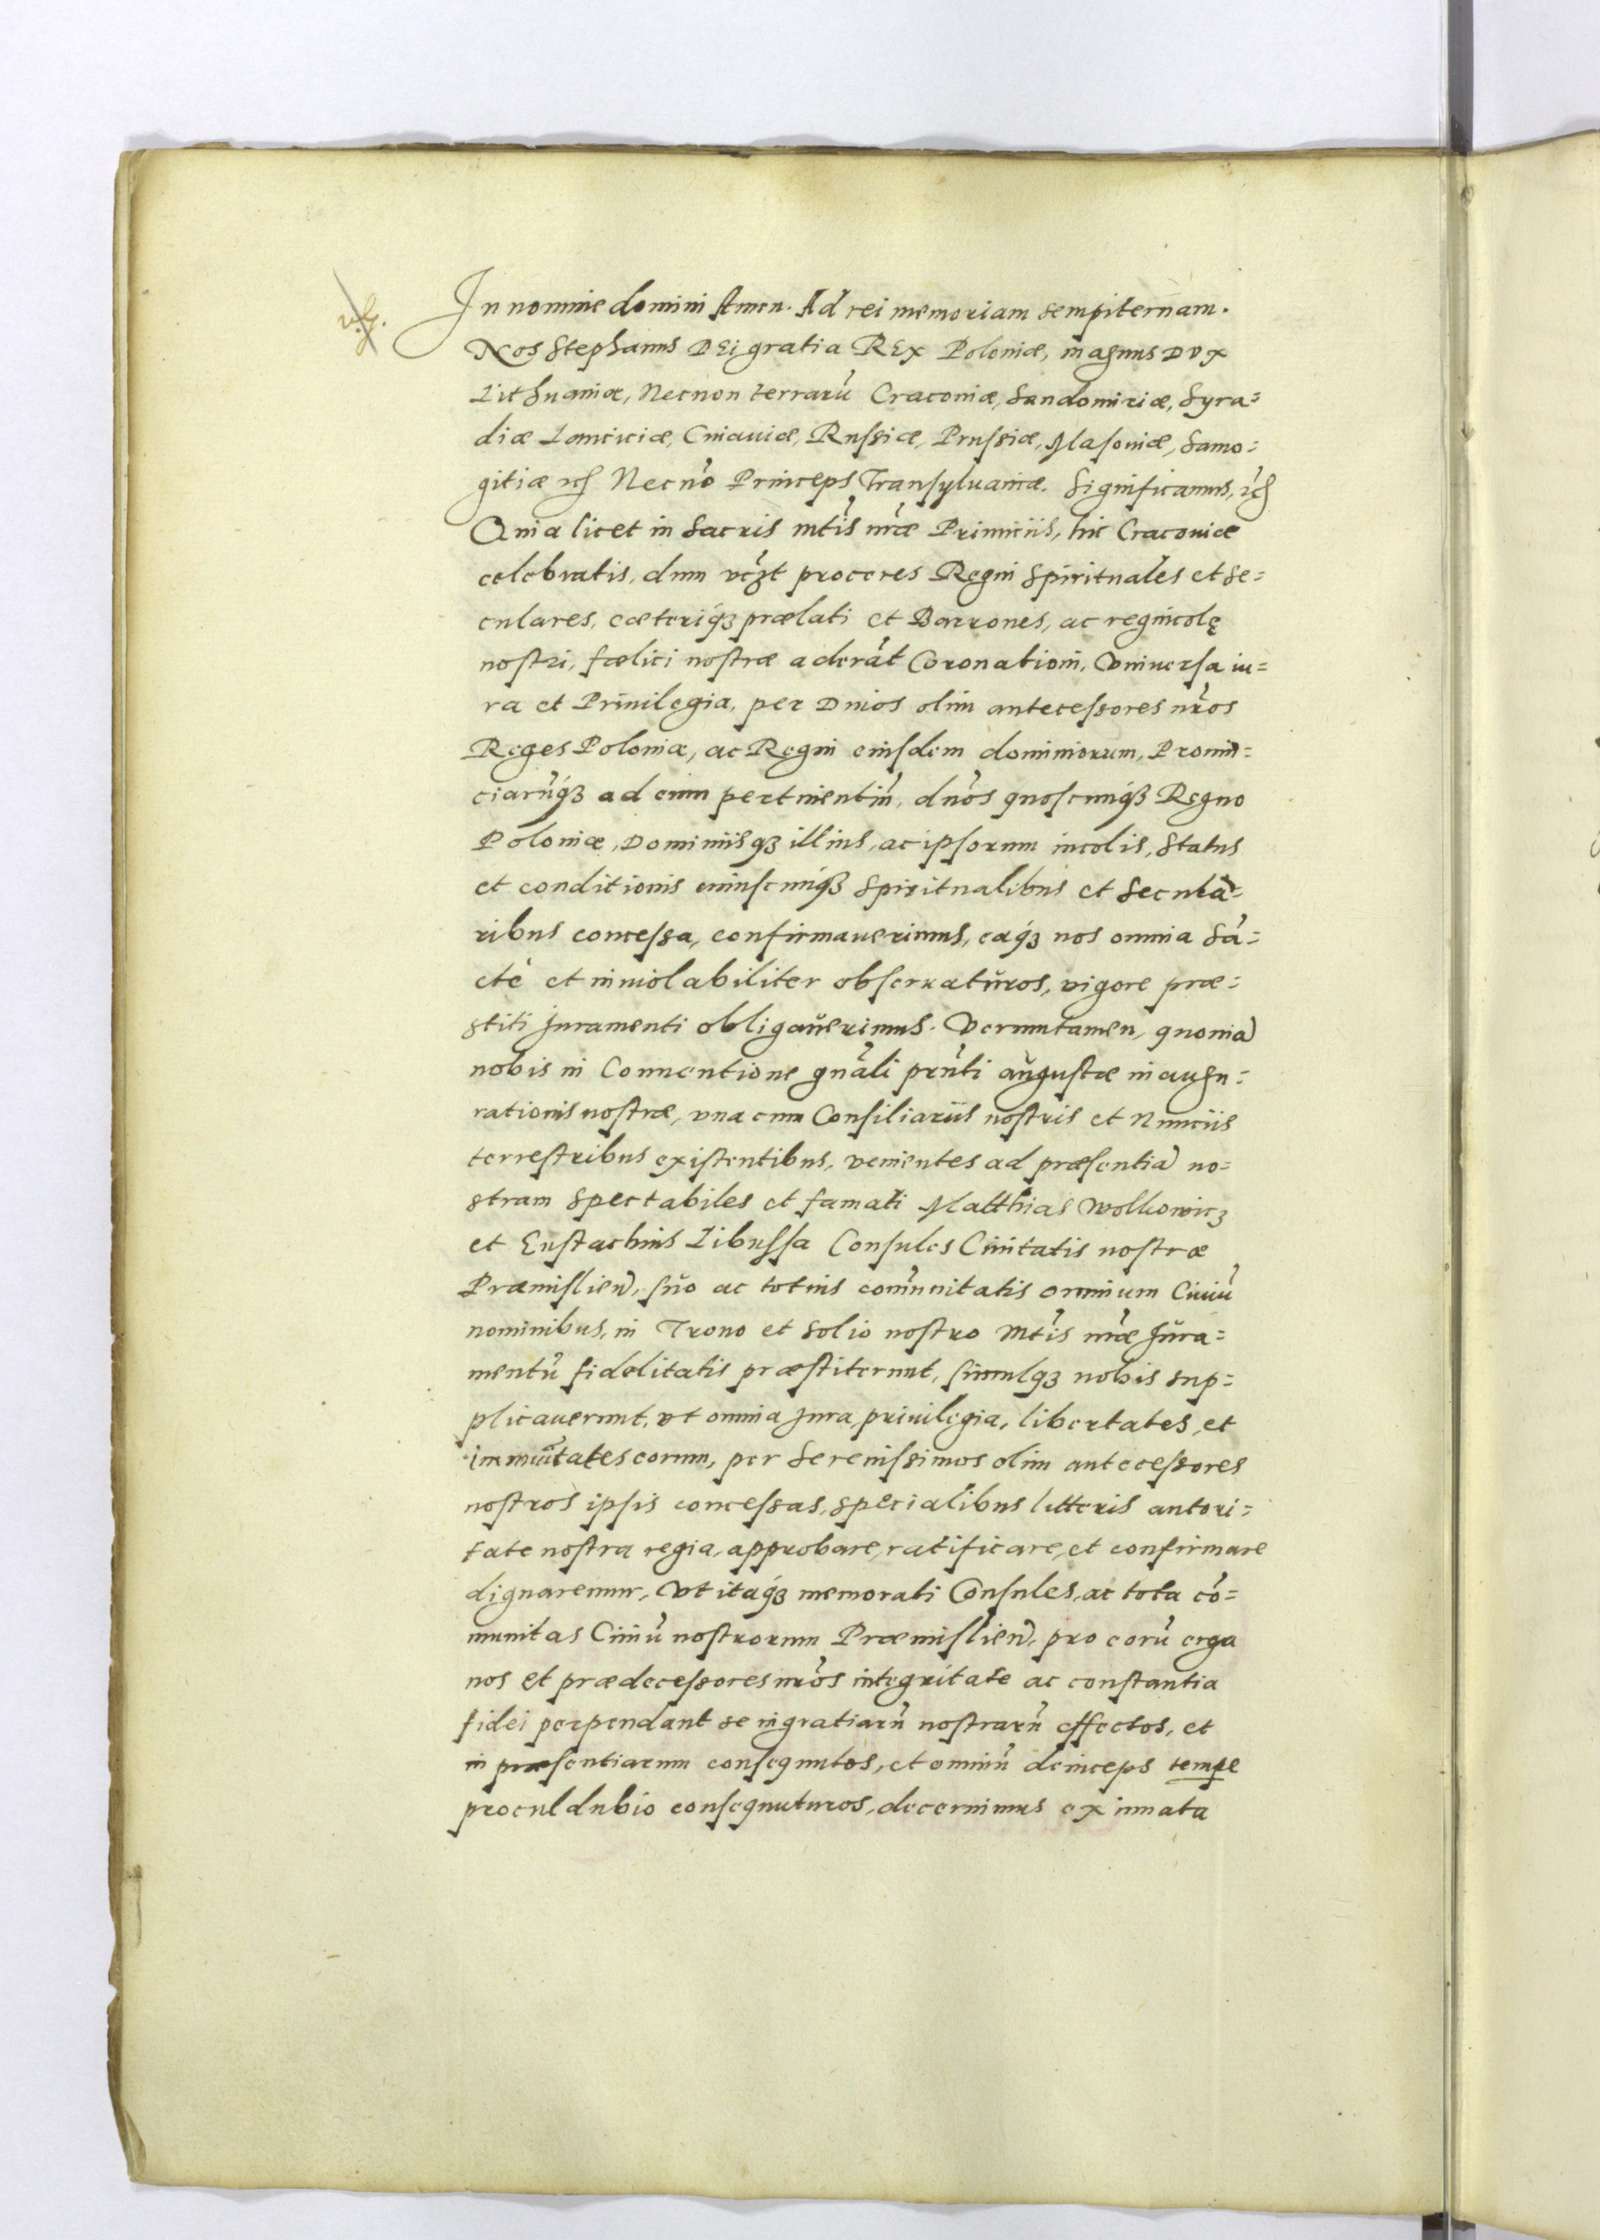 In nomine domini Amen. Ad rei memoriam sempiternam.
Nos Stephanus DEi gratia REx Poloniæ, magnus DVx
Lithuaniæ, Necnon terrarũ Cracouiæ, Sandomiriæ, Syra=
diæ Lanciciæ, Cuiauiæ, Russiæ, Prussiæ, Masouiæ, Samo=
gitiæ ꝛc̃ Necnõ Princeps Transyluaniæ. Significamus, ꝛc̃
Quia licet in Sacris mt̃is nr̃æ Primiciis, hic Cracouiæ
celebratis, dum vc̃zt proceres Regni Spirituales et Se=
culares, cæteriq́ꝫ prælati et Barrones, ac regnicolę
nostri, fœlici nostræ aderãt Coronationi, Vniuersa iu=
ra et Priuilegia, per Diuos olim antecessores nr̃os
Reges Poloniæ, ac Regni eiusdem dominiorum, Prouin=
ciarũq́ꝫ ad eum pertinentiũ, dños quoscunq́ꝫ Regno
Poloniæ, Dominiisqꝫ illius, ac ipsorum incolis, Status
et conditionis cuiuscunq́ꝫ Spiritualibus et Secula=
ribus concessa, confirmauerimus, eaq́ꝫ nos omnia Sã=
ctè et inuiolabiliter obseruatŭros, vigore præ=
stiti Juramenti obligaŭerimus. Veruntamen, quoniã
nobis in Conuentione gñali prñti aŭgustæ inaugu=
rationis nostræ, vna cum Consiliariis nostris et Nunciis
terrestribus existentibus, venientes ad præsentiã no=
stram Spectabiles et famati Matthias Wolkowicz
et Eustachius Libussa Consules Ciuitatis nostræ
Præmislieñ, sŭo ac totius com̃unitatis omnium Ciuiũ
nominibus, in Trono et Solio nostro Mt̃is nr̃æ Jŭra=
mentũ fidelitatis præstiterunt, simulqꝫ nobis sup=
plicauerunt, vt omnia Jura, priuilegia, libertates, et
immuĩtates eorum, per Serenissimos olim antecessores
nostros ipsis concessas, specialibus litteris autori=
tate nostra regia, approbare, ratificare, et confirmare
dignaremur, Vt itaq́ꝫ memorati Consules, ac tota cõ=
munitas Ciuiũ nostrorum Præmislieñ, pro eorũ erga
nos et prædecessores nr̃os integritate ac constantia
fidei perpendant se in gratiarũ nostrarũ effectos, et
in præsentiarum consequutos, et omniũ deinceps tempe
procul dubio consequuturos, decernimus ex innata